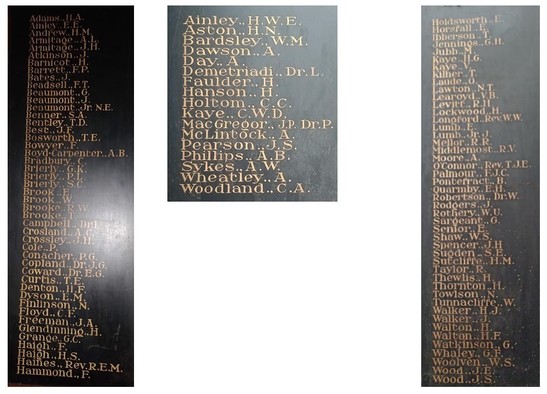 Adams., H.A.
Ainley., E.E.
Andrew., H.M.
Armitage., A.L.
Armitage., J.H.
Atkinson., J.
Barnicot., H.
Barrett., F.P.
Bates., J.
Beadsell., F.T.
Beaumont., G.
Beaumont., J.
Beaumont, Dr. N.E.
Benner., S.A.
Bentley., T.D.
Best., J.F.
Bosworth., T.E.
Bowyer., F.
Boyd-Carpenter., A.B.
Bradbury., C.
Brierly., G.K.
Brierly., P.L.
Brierly., S.C.
Brook., E.
Brook., W.
Brooke., R.W.
Brooke., T.
Campbell.,
Crosland., A.C.
Crossley., J.H.
Cole., P.
Conacher., P.G.
Copland., Dr. J.G.
Coward., Dr. E.G.
Curtis., T.E.
Denton., H.F.
Dyson., E.M.
Finlinson., N.
Floyd., C.F.
Freeman., J.A.
Glendinning., H.
Grange., G.C.
Haigh., F.
Haigh., H.S.
Haines., Rev. R.E.M.
Hammond., F.
Ainley., H.W.E.
Aston., H.N.
Bardsley., W.M.
Dawson., A.
Day., A.
Demetriadi., Dr. L.
Faulder., H.
Hanson., H.
Holtom., C.C.
Kaye., C.W.D.
MacGregor., J.P. Dr. P.
McLintock., A.
Pearson., J.S.
Phillips., A.B.
Sykes., A.W.
Wheatley., A.
Woodland., C.A.
Holdsworth., E.
Horsfall., E.
Ibberson., T.
Jennings., G.H.
Jubb., M.
Kaye., H.G.
Kaye., V.
Kilner., T.
Laude., J.
Lawton., N.T.
Learoyd., F.B.
Levier., R.H.
Lockwood., H.
Longford., Rev. W.W.
Lumb., E.
Lumb., Jr. J.
Mellor., R.R.
Middlemost., R.V.
Moore., A.
O'Connor., Rev. T.J.E.
Palmour., F.J.C.
Pontefract., B.
Quarmby., E.H.
Robertson., Dr. W.
Rodgers., J.
Rothery., W.U.
Sargeant., G.
Senior., E.
Shaw., W.S.
Spencer., J.H
Sugden., S.E.
Sutcliffe., H.M.
Taylor., R.
Thewlis., H.
Thornton., H.
Towlson., N.
Tunnacliffe., W.
Walker., H.J.
Walker., J.
Walton., H.
Walton., H.F.
Watkinson., G.
Whaley., G.F.
Woolven., W.S.
Wood., J.E.
Wood., J.S.